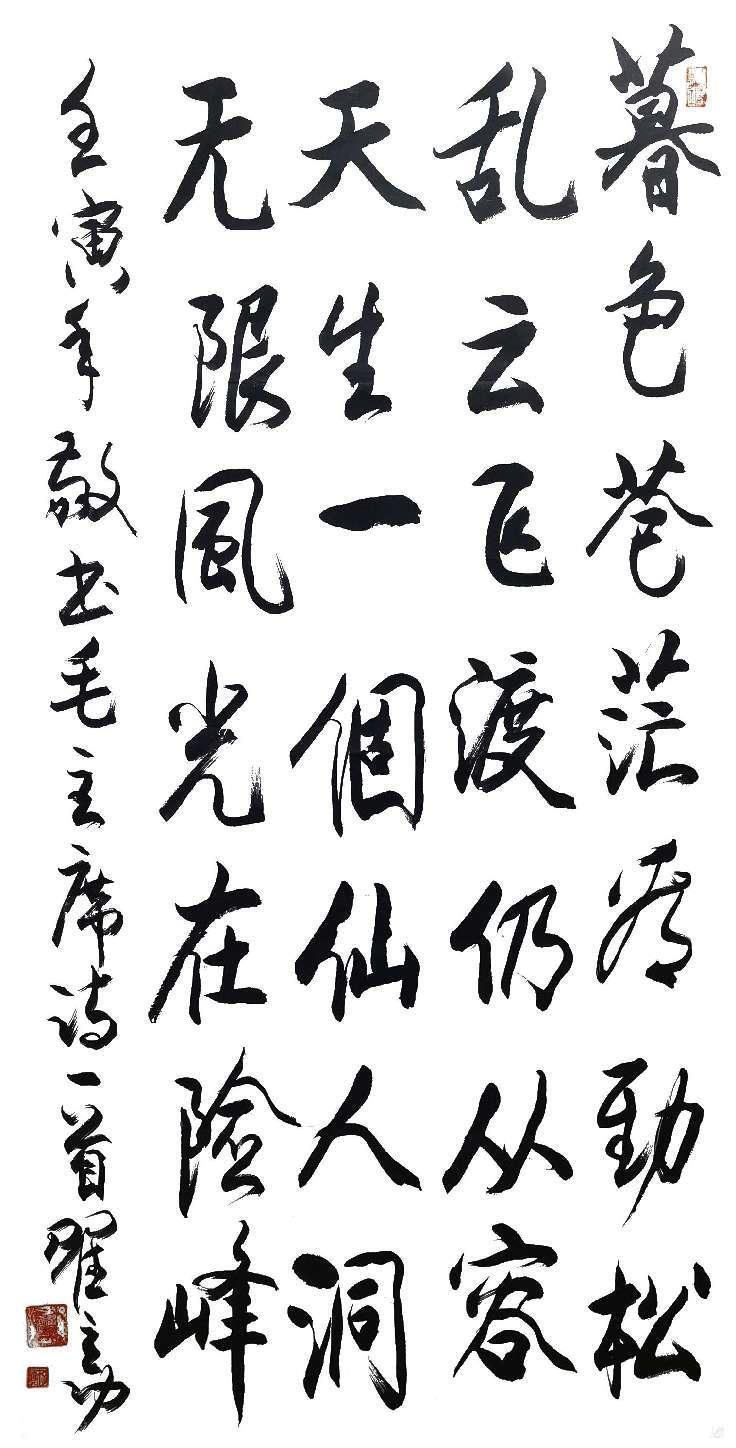 暮色苍茫看劲松
乱云飞渡仍从容
天生一個仙人洞
无限風光在險峰
壬寅年敬书毛主席诗一首瞿立功